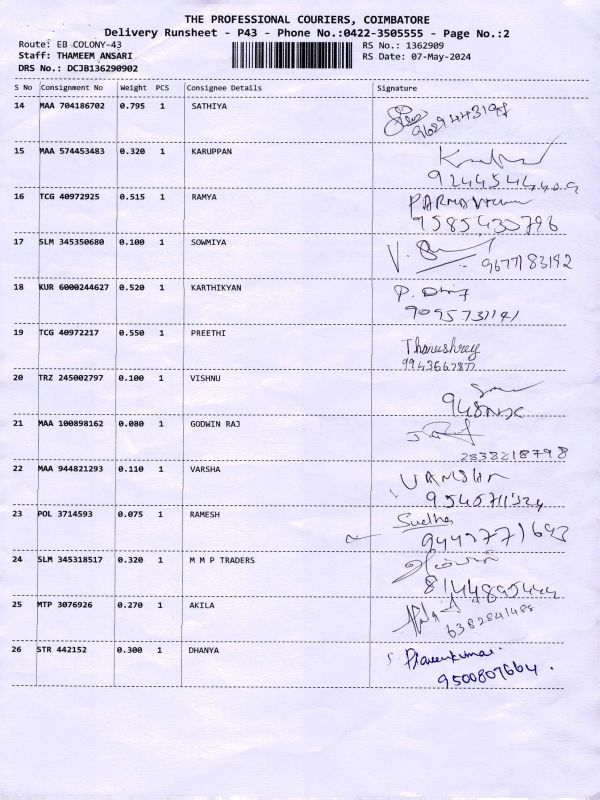 THE PROFESSIONAL COURIERS, COIMBATORE
Delivery Runsheet - P43 - Phone No.:0422-3505555 - Page No.:2
Route: EB COLONY-43 RS No.: 1362909
Staff: THAMEEM ANSARI RS Date: 07-May-2024
DRS No.: DCJB136290902
S No Consignment No Weight PCS Consignee Details Signature
14 MAA 704186702 0.795 1 SATHIYA
15 MAA 574453483 0.320 1 KARUPPAN
16 TCG 40972925 0.515 1 RAMYA
9585430796
17 SLM 345350680 0.100 1 SOWMIYA
9677183192
18 KUR 6000244627 0.520 1 KARTHIKYAN
9095731141
19 TCG 40972217 0.550 1 PREETHI
Thanushrey
20 TRZ 245002797 0.100 1 VISHNU
21 MAA 100898162 0.080 1 GODWIN RAJ
22 MAA 944821293 0.110 1 VARSHA
23 POL 3714593 0.075 1 RAMESH
Sudha
24 SLM 345318517 0.320 1 M M P TRADERS
25 MTP 3076926 0.270 1 AKILA
6382841488
26 STR 442152 0.300 1 DHANYA
Praveenkumar.
9500807664.